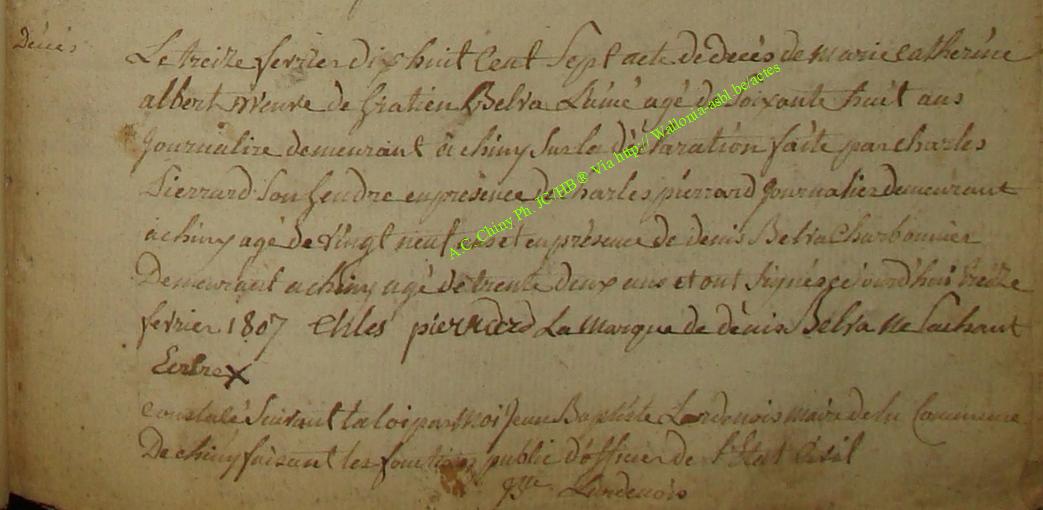 Décés
Le treize fevrier dix huit Cent Sept acte de decés de marie catherine
albert veuve de Gratien Belva L'ainé agé de Soixante huit ans
Journalire demeurant à chiny Sur la Déclaration faite par charles
Pierrard Son Gendre en présence de charles pierrard Journalier demeurant
à chiny agé de vingt neuf ans et en présence de denis Belva Charbonnier
Demeurant a chiny agé de trente deux ans et ont Signés ce jourd'hui treize
fevrier 1807 Chles pierrard La Marque de dénis Belva ne Sachant
Ecrire X
constaté Suivant la loi par Moi Jean Baptiste Lardenois maire de la Commune
De chiny faisant les fonctions public d'officier de l'Etat Civil
Lardenois
A.C. Chiny Ph. JC/HB ® Via http:// Wallonia-asbl.be/actes